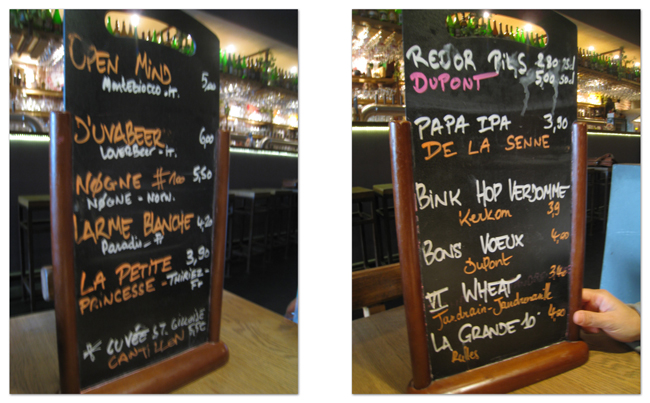 OPEN MIND
MONTEGIOCO - IT. 5,00
D'UVABEER 6,00
LOVERBEER - IT.
NØGNE #100 5,50
NØGNE - NORV.
LARME BLANCHE 4,20
Paradis - Fr
LA PETITE 3,90
PRINCESSE - THIRIEZ -
Fr
* CUVÉE ST. GILLOISE
CANTILLON
REDOR PILS 2,80 25cl
DUPONT 5,00 50cl
PAPA IPA 3,90
DE LA SENNE
BINK HOP VERDOMME
Kerkom 3,9
BONS VOEUX 4,00
Dupont
VI WHEAT
Jandrain-Jandrenouille
LA GRANDE 10° 4,00
Rulles